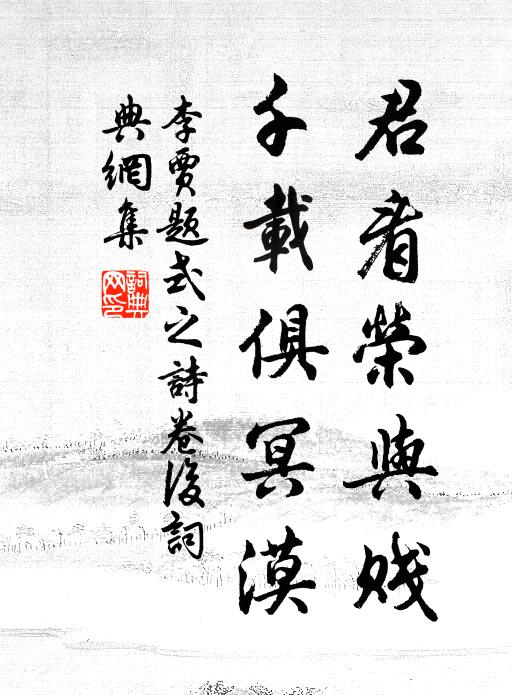 君看榮與賤
千載俱冥漠
李賈題式之詩卷後詞
典網集
詞典
网印